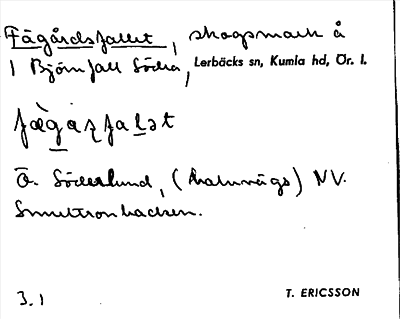 Fägårdsfallet, skogsmark å
1 Björnfall Södra, Lerbäcks sn, Kumla hd, Ör. l.
fægaʂfalət
Ö. Söderlund, (halvvägs) NV.
Smultronbacken.
3.1 T. ERICSSON